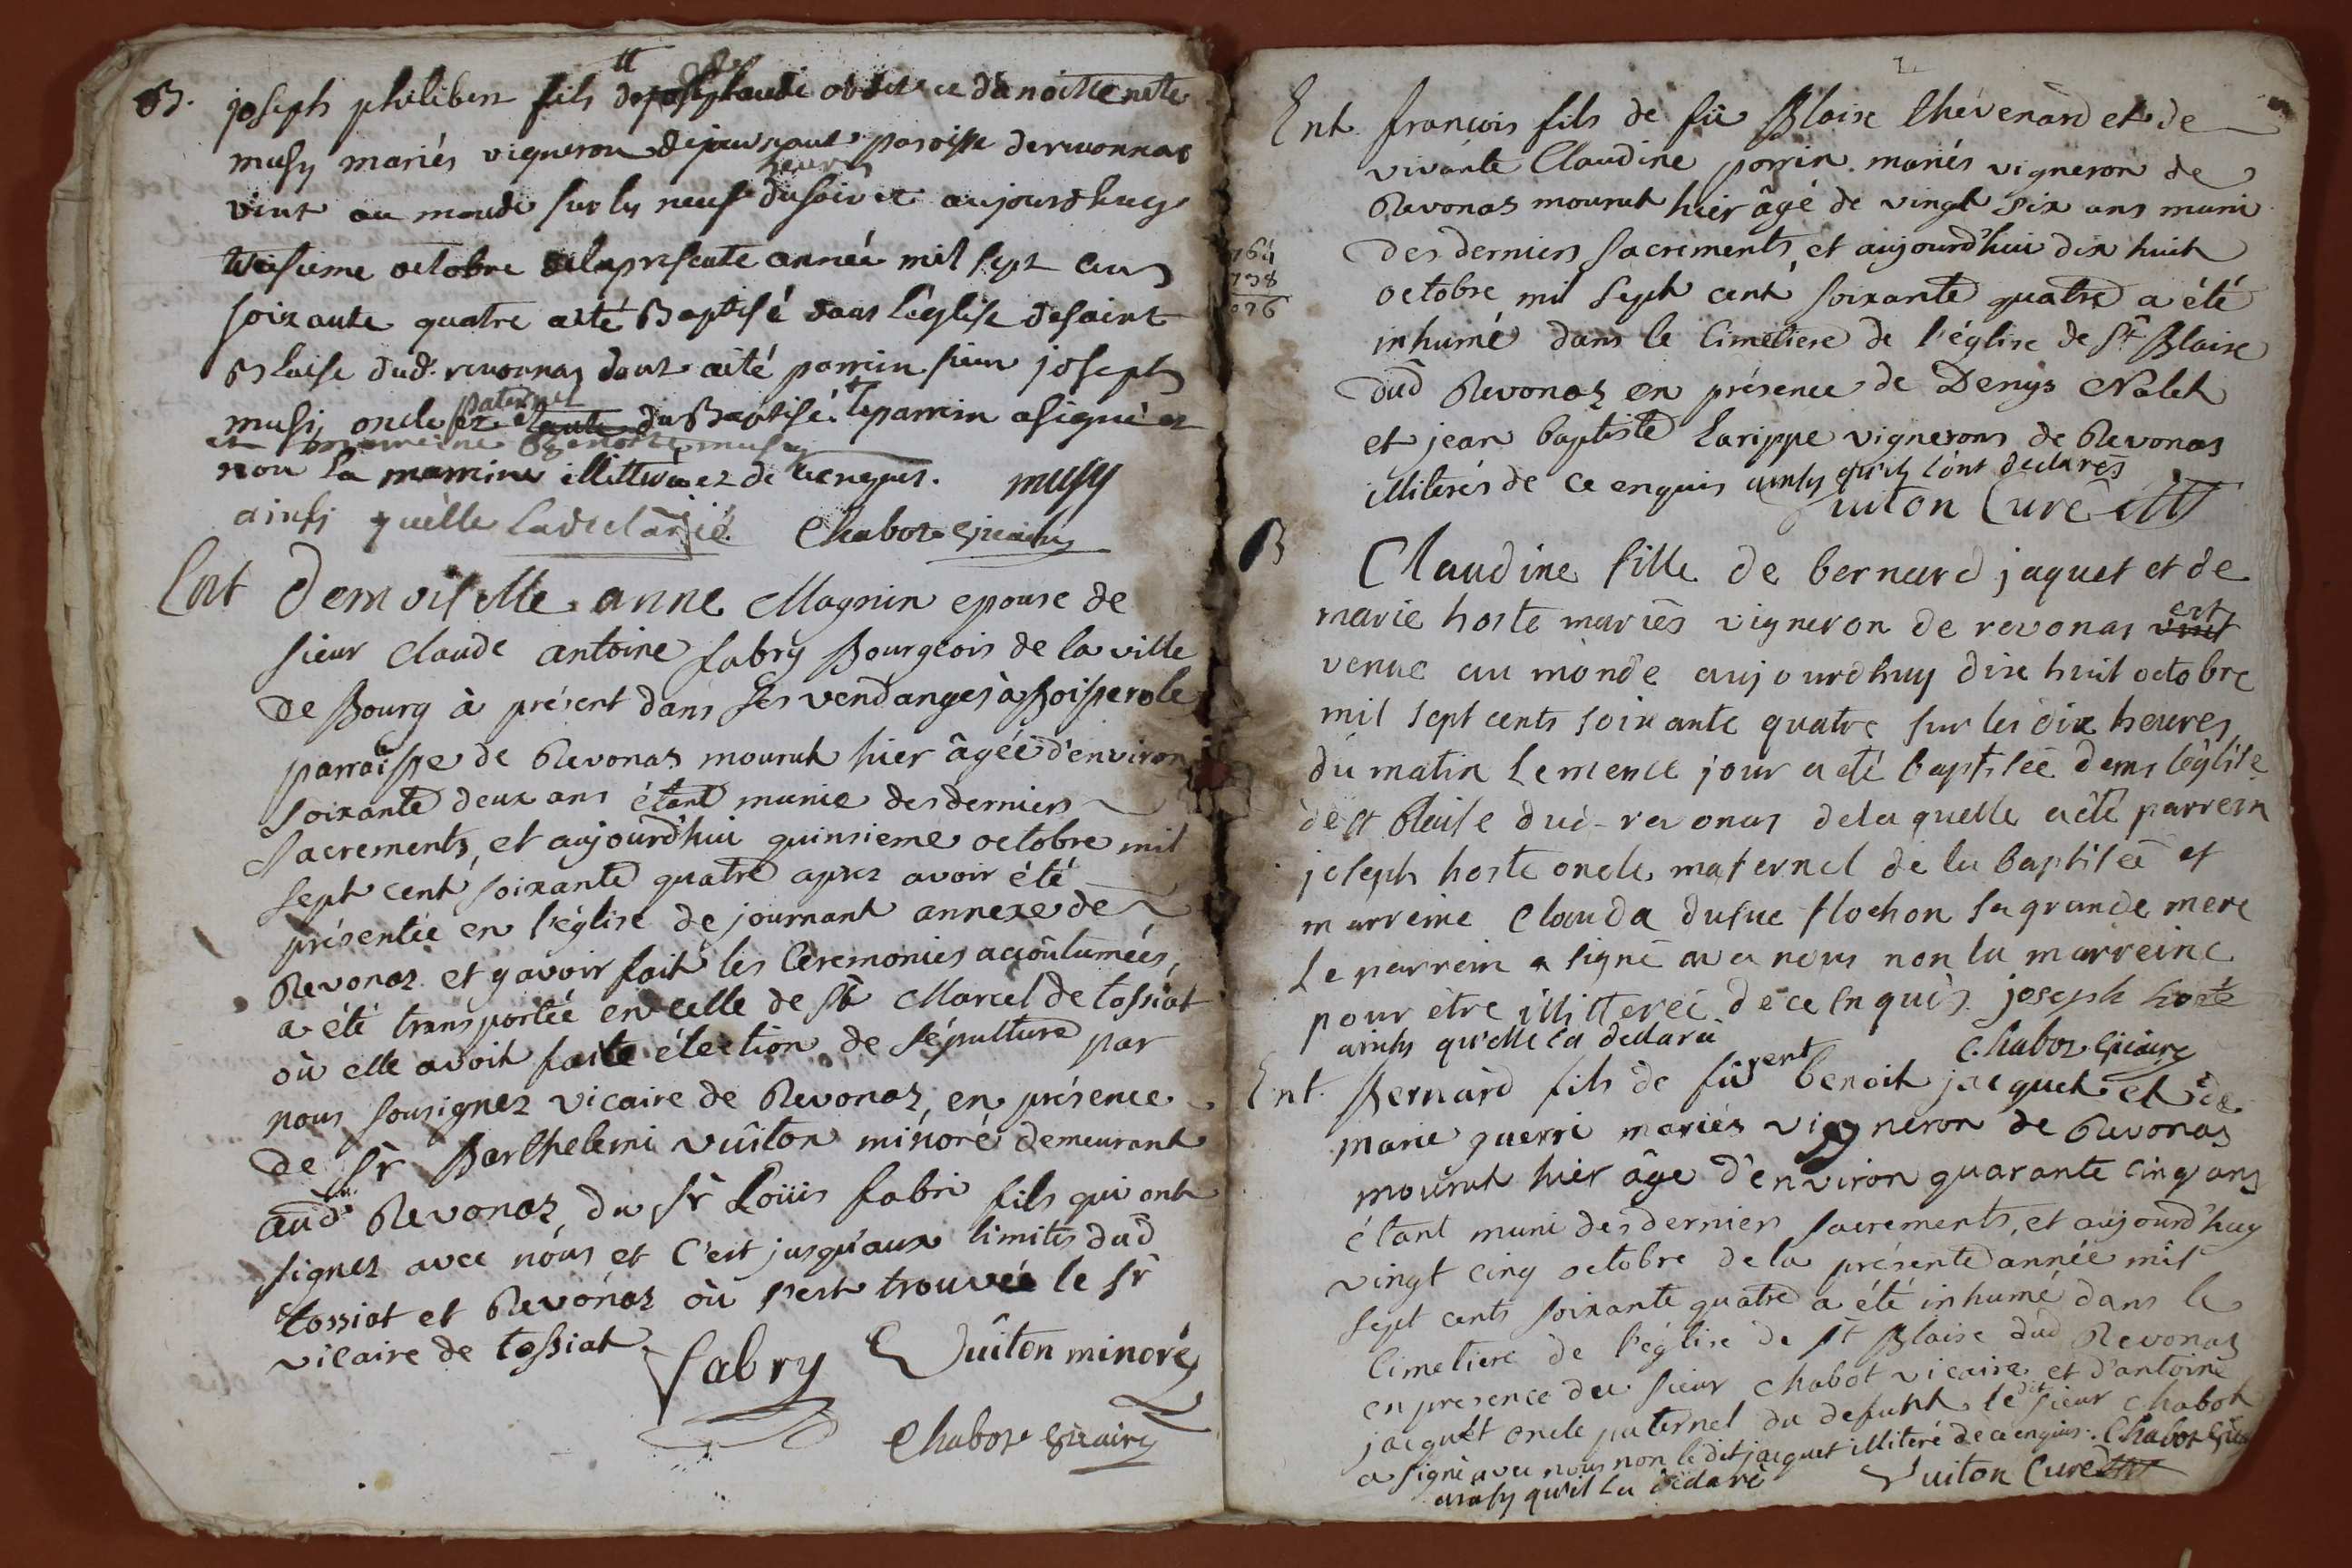 B. joseph philibert fils de claude et de
musy mariés vigneron de journant paroisse de revonnas
vint au monde sur les neuf heures du soir et aujourdhuy
octobre de la presente année mil sept cens
soixante quatre a été Baptisé dans l'eglise de saint
Blaise dud. revonnas dont a été parrin sieur joseph
musy oncle paternel du Baptisé. le parrin a signé et
et marreine musy
non la marrine illitteré et de ce enquis. musy
ainsi quelle la declaré. Chabot vicaire
Ent Demoiselle anne Magnin epouse de
sieur claude antoine fabry Bourgeois de la ville
de Bourg à présent dans ses vendanges à Boisserole
parroisse de Revonas mourut hier âgée d'environ
soixante deux ans étant munie des derniers
sacrements, et aujourd'hui quinsieme octobre mil
sept cent soixante quatre aprez avoir été
présentée en l'église de journant annexe de
Revonas et y avoir fait les Ceremonies accoûtumées,
a été transportée en celle de St Marcel de tossiat
où elle avoit faite élection de sépulture par
nous sousignez vicaire de Revonas, en présence
de Sr Barthelemi vuiton minoré demeurant
aud. Revonas, du Sr Loüis fabri fils qui ont
signez avec nous et C'est jusqu'aux limites dud
tossiat et Revonas où s'est trouvée le Sr
vicaire de tossiat
fabry Vuiton minoré
Chabot vicaire
Ent. françois fils de fû Blaise thévenard et de
vivante Claudine perrin mariés vigneron de
Revonas mourut hier âgé de vingt six ans muni
des derniers sacrements, et aujourd'hui dix huit
764
738
026
octobre mil sept cent soixante quatre a été
inhumé dans le Cimetiere de l'église de St Blaise
dud Revonas en présence de Denys Nalet
et jean baptiste Larippe vignerons de Revonas
illiterés de ce enquis ainsy qu'ils l'ont declarés
Vuiton Curé
B Claudine fille de bernard jaquet et de
marie hoste mariés vigneron de revonas est
venue au monde aujourdhuy dixe huit octobre
mil sept cents soixante quatre sur les dixe heures
du matin le meme jour a eté baptisée dans léglise
de st blaise dud revonas de laquelle a été parrein
joseph hoste oncle maternel de la baptisée et
marreine Clauda dufue flochon sa grande mere
Le parrein a signé avec nous non la marreine
pour etre illitterée de ce enquis. joseph hoste
ainsy qu'elle la declaré Chabot vicaire
Ent. Bernard fils de fûrent benoit jacquet et de
marie guerri mariés vigneron de Revonas
mourut hier âge d'environ quarante cinq ans
étant muni des derniers sacrements, et aujourd'huy
vingt cinq octobre de la présente année mil
sept cents soixante quatre a été inhumé dans le
Cimetiere de l'église de St Blaise dud Revonas
en presence du sieur chabot vicaire et d'antoine
jacquet oncle paternel du defunt ledit sieur chabot
a signé avec nous non le dit jacquet illiteré de ce enquis. Chabot
ainsy qu'il la declaré Vuiton Curé